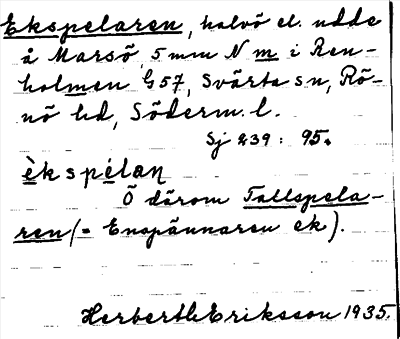 Ekspelaren, halvö el. udde
å Marsö 5 mm N m i Ren-
holmen G 57, Svärta sn, Rö-
nö hd, Söderm. l.
Sj 239: 95.
èkspélaɳ
Ö därom Tallspela-
ren (= Enspännaren ek).
Herbert Eriksson 1935.